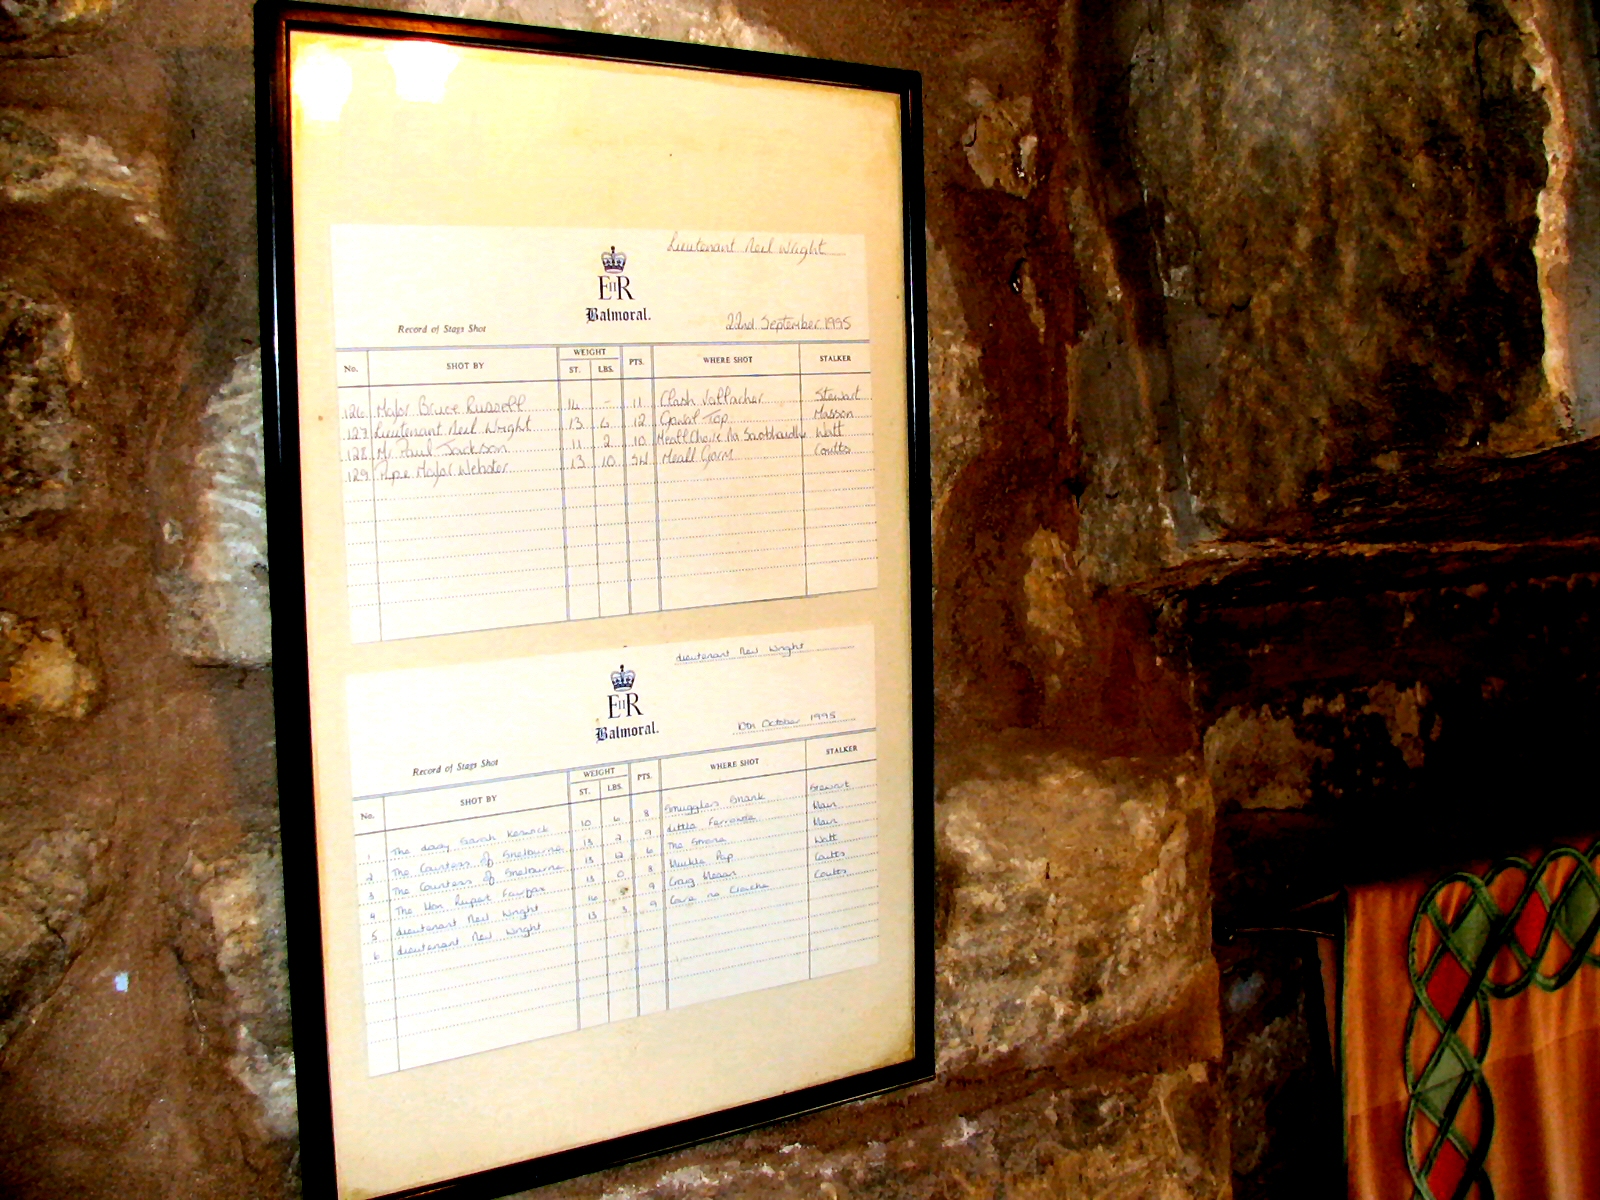 Lieutenant Neil Wright
EIIR
Balmoral.
Record of Stags Shot 22nd September 1995
No. SHOT BY WEIGHT ST. LBS. PTS. WHERE SHOT STALKER
126 Major Bruce Russell 14 - 11 Clash Vallacher Stewart
127 Lieutenant Neil Wright 13 6 12 Top Masson
128 Mr Paul Jackson 11 2 10 Na Watt
129 Pipe Major Webster 13 10 SW Meall Gorm Coutts
Lieutenant Neil Wright
EIIR
Balmoral.
Record of Stags Shot 10th October 1995
No. SHOT BY WEIGHT ST. LBS. PTS. WHERE SHOT STALKER
1 The Lady Sarah Keswick 10 6 8 Smugglers Shank Stewart
2 The Countess of Shelburne 13 2 9 Little Main
3 The Countess of Shelburne 13 12 6 The Main
4 The Hon Rupert Fairfax 13 0 8 Muckle Pap Watt
5 Lieutenant Neil Wright 14 9 Craig Coutts
6 Lieutenant Neil Wright 13 3 9 na Coutts